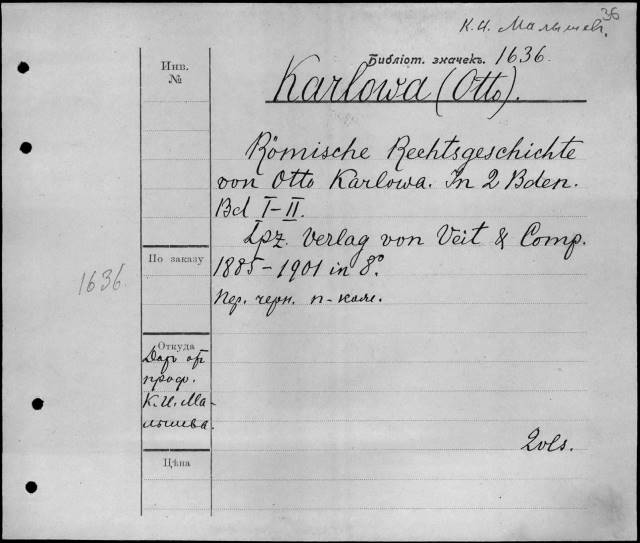 36
К. И. Малышев.
Библіот. значекъ. 1636.
Инв.
№
Karlowa (Otto).
Römische Rechtsgeschichte
von Otto Karlowa. In 2 Bden.
Bd I–II.
Lpz. Verlag von Veit & Comp.
По заказу
1885–1901 in 8°.
1636.
Пер. черн. п-кож.
Откуда
Даръ отъ
проф.
К. И. Ма-
лышева.
2 vls.
Цѣна